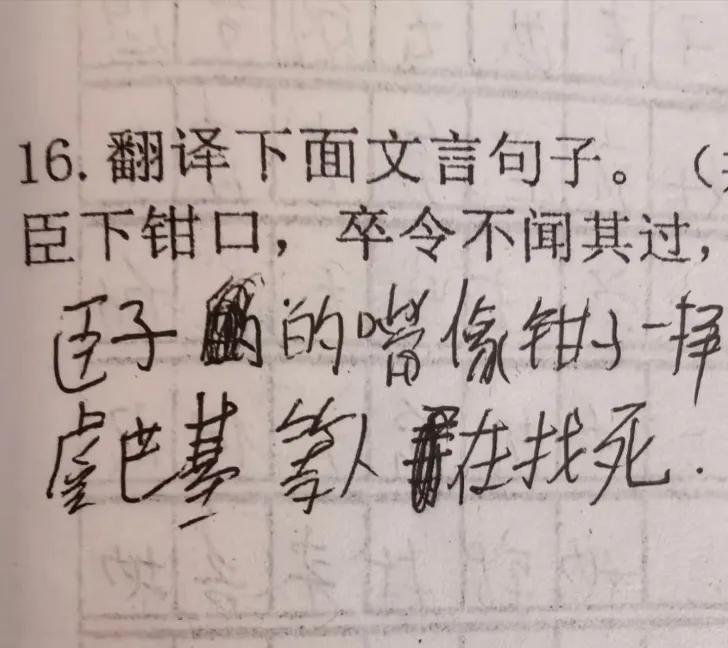 16. 翻译下面文言句子。（
臣下钳口，卒令不闻其过，
臣子的嘴像钳子一样
等人在找死.